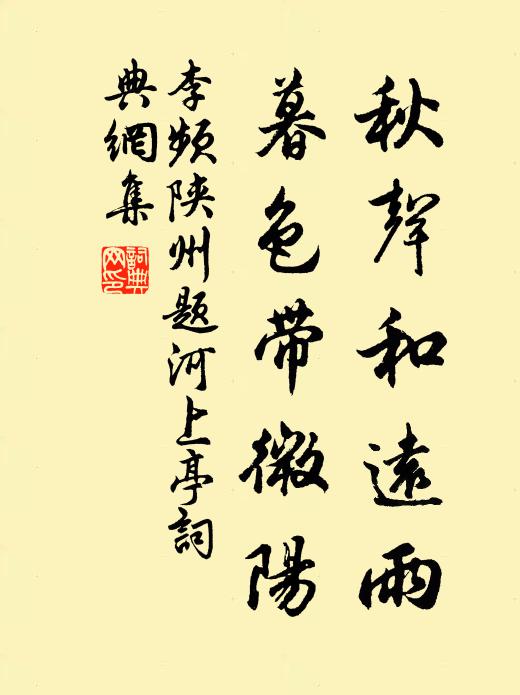 秋聲和遠雨
暮色帶微陽
李頻陝州題河上亭詞
典網集
詞典網印